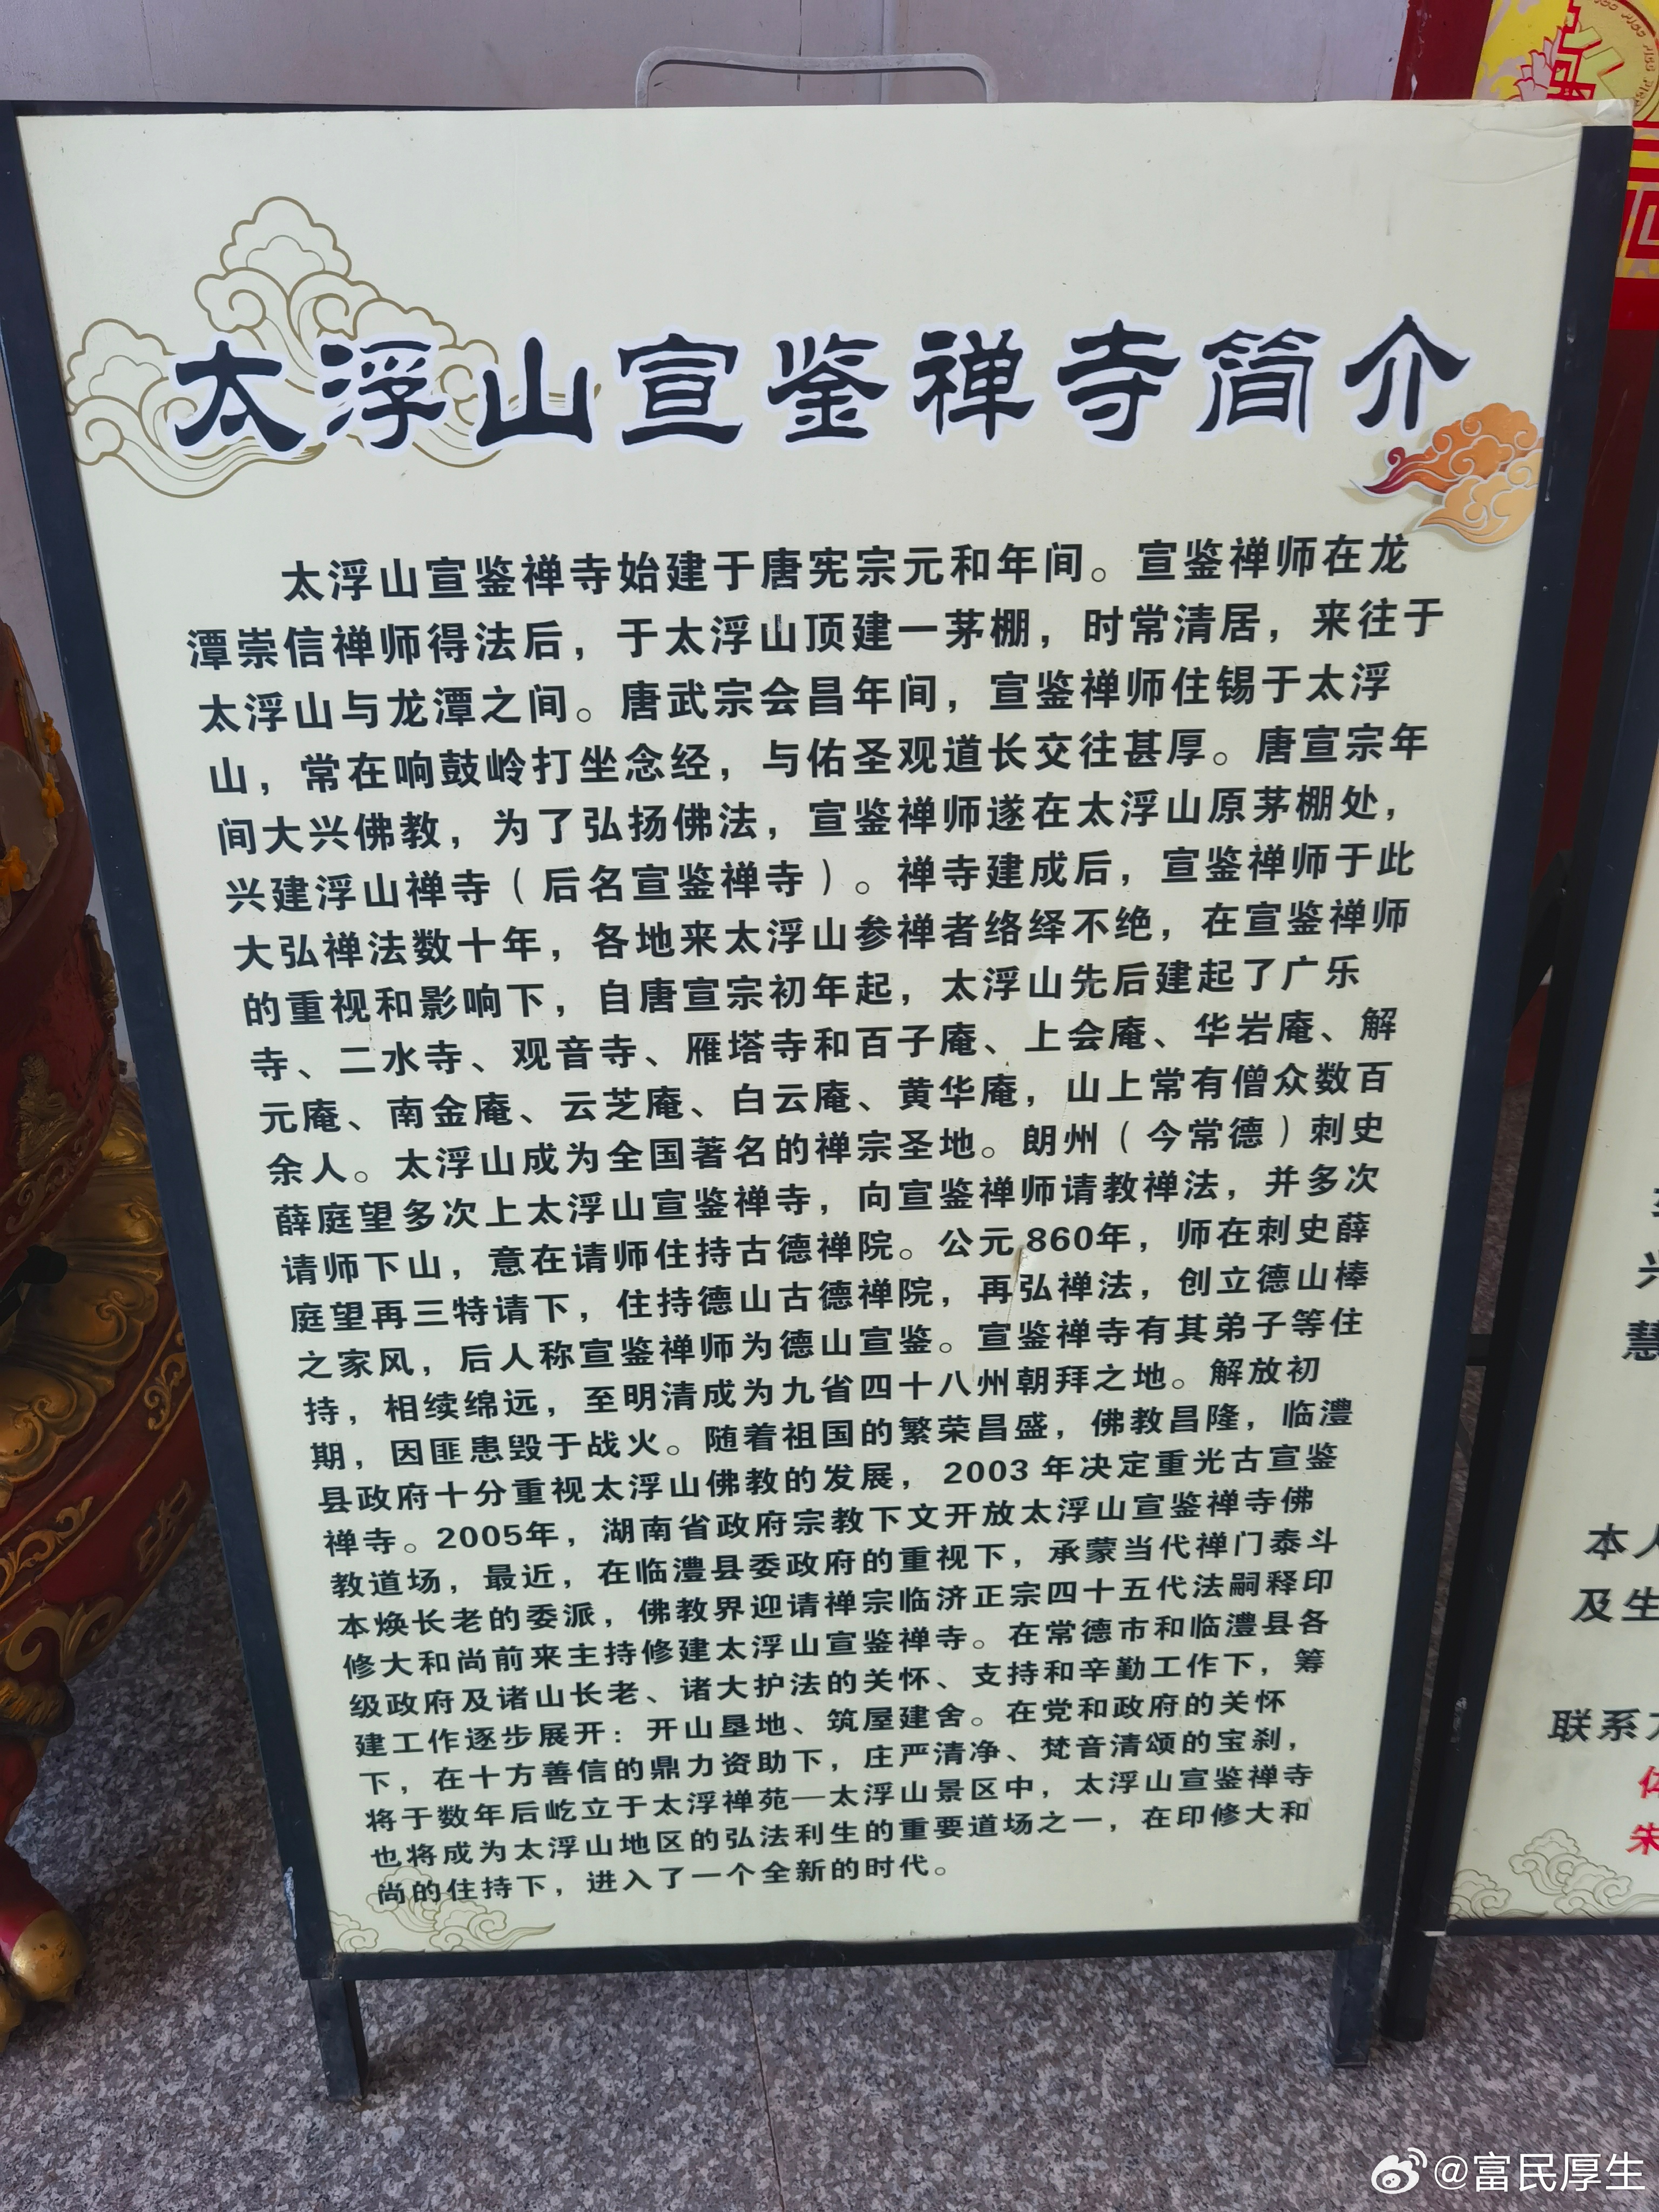 太浮山宣鉴禅寺简介
太浮山宣鉴禅寺始建于唐宪宗元和年间。宣鉴禅师在龙
潭崇信禅师得法后，于太浮山顶建一茅棚，时常清居，来往于
太浮山与龙潭之间。唐武宗会昌年间，宣鉴禅师住锡于太浮
山，常在响鼓岭打坐念经，与佑圣观道长交往甚厚。唐宣宗年
间大兴佛教，为了弘扬佛法，宣鉴禅师遂在太浮山原茅棚处，
兴建浮山禅寺（后名宣鉴禅寺）。禅寺建成后，宣鉴禅师于此
大弘禅法数十年，各地来太浮山参禅者络绎不绝，在宣鉴禅师
的重视和影响下，自唐宣宗初年起，太浮山先后建起了广乐
寺、二水寺、观音寺、雁塔寺和百子庵、上会庵、华岩庵、解
元庵、南金庵、云芝庵、白云庵、黄华庵，山上常有僧众数百
余人。太浮山成为全国著名的禅宗圣地。朗州（今常德）刺史
薛庭望多次上太浮山宣鉴禅寺，向宣鉴禅师请教禅法，并多次
请师下山，意在请师住持古德禅院。公元860年，师在刺史薛
庭望再三特请下，住持德山古德禅院，再弘禅法，创立德山棒
之家风，后人称宣鉴禅师为德山宣鉴。宣鉴禅寺有其弟子等住
持，相续绵远，至明清成为九省四十八州朝拜之地。解放初
期，因匪患毁于战火。随着祖国的繁荣昌盛，佛教昌隆，临澧
县政府十分重视太浮山佛教的发展，2003年决定重光古宣鉴
禅寺。2005年，湖南省政府宗教下文开放太浮山宣鉴禅寺佛
教道场，最近，在临澧县委政府的重视下，承蒙当代禅门泰斗
本焕长老的委派，佛教界迎请禅宗临济正宗四十五代法嗣释印
修大和尚前来主持修建太浮山宣鉴禅寺。在常德市和临澧县各
级政府及诸山长老、诸大护法的关怀、支持和辛勤工作下，筹
建工作逐步展开：开山垦地、筑屋建舍。在党和政府的关怀
下，在十方善信的鼎力资助下，庄严清净、梵音清颂的宝刹，
将于数年后屹立于太浮禅苑—太浮山景区中，太浮山宣鉴禅寺
也将成为太浮山地区的弘法利生的重要道场之一，在印修大和
尚的住持下，进入了一个全新的时代。
慧
本人
及生
联系
朱
@富民厚生